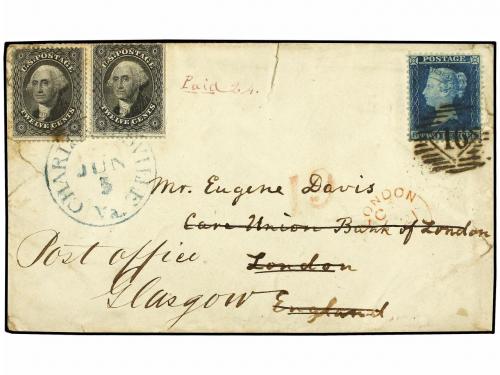 U.S. POSTAGE
TWELVE CENTS
U.S. POSTAGE
TWELVE CENTS
POSTAGE
Paid 24.
10
CHARLOTTESVILLE Va.
JUN
5
19
LONDON
Mr. Eugene Davis
Care Union Bank of London
Post office
London
Glasgow
England